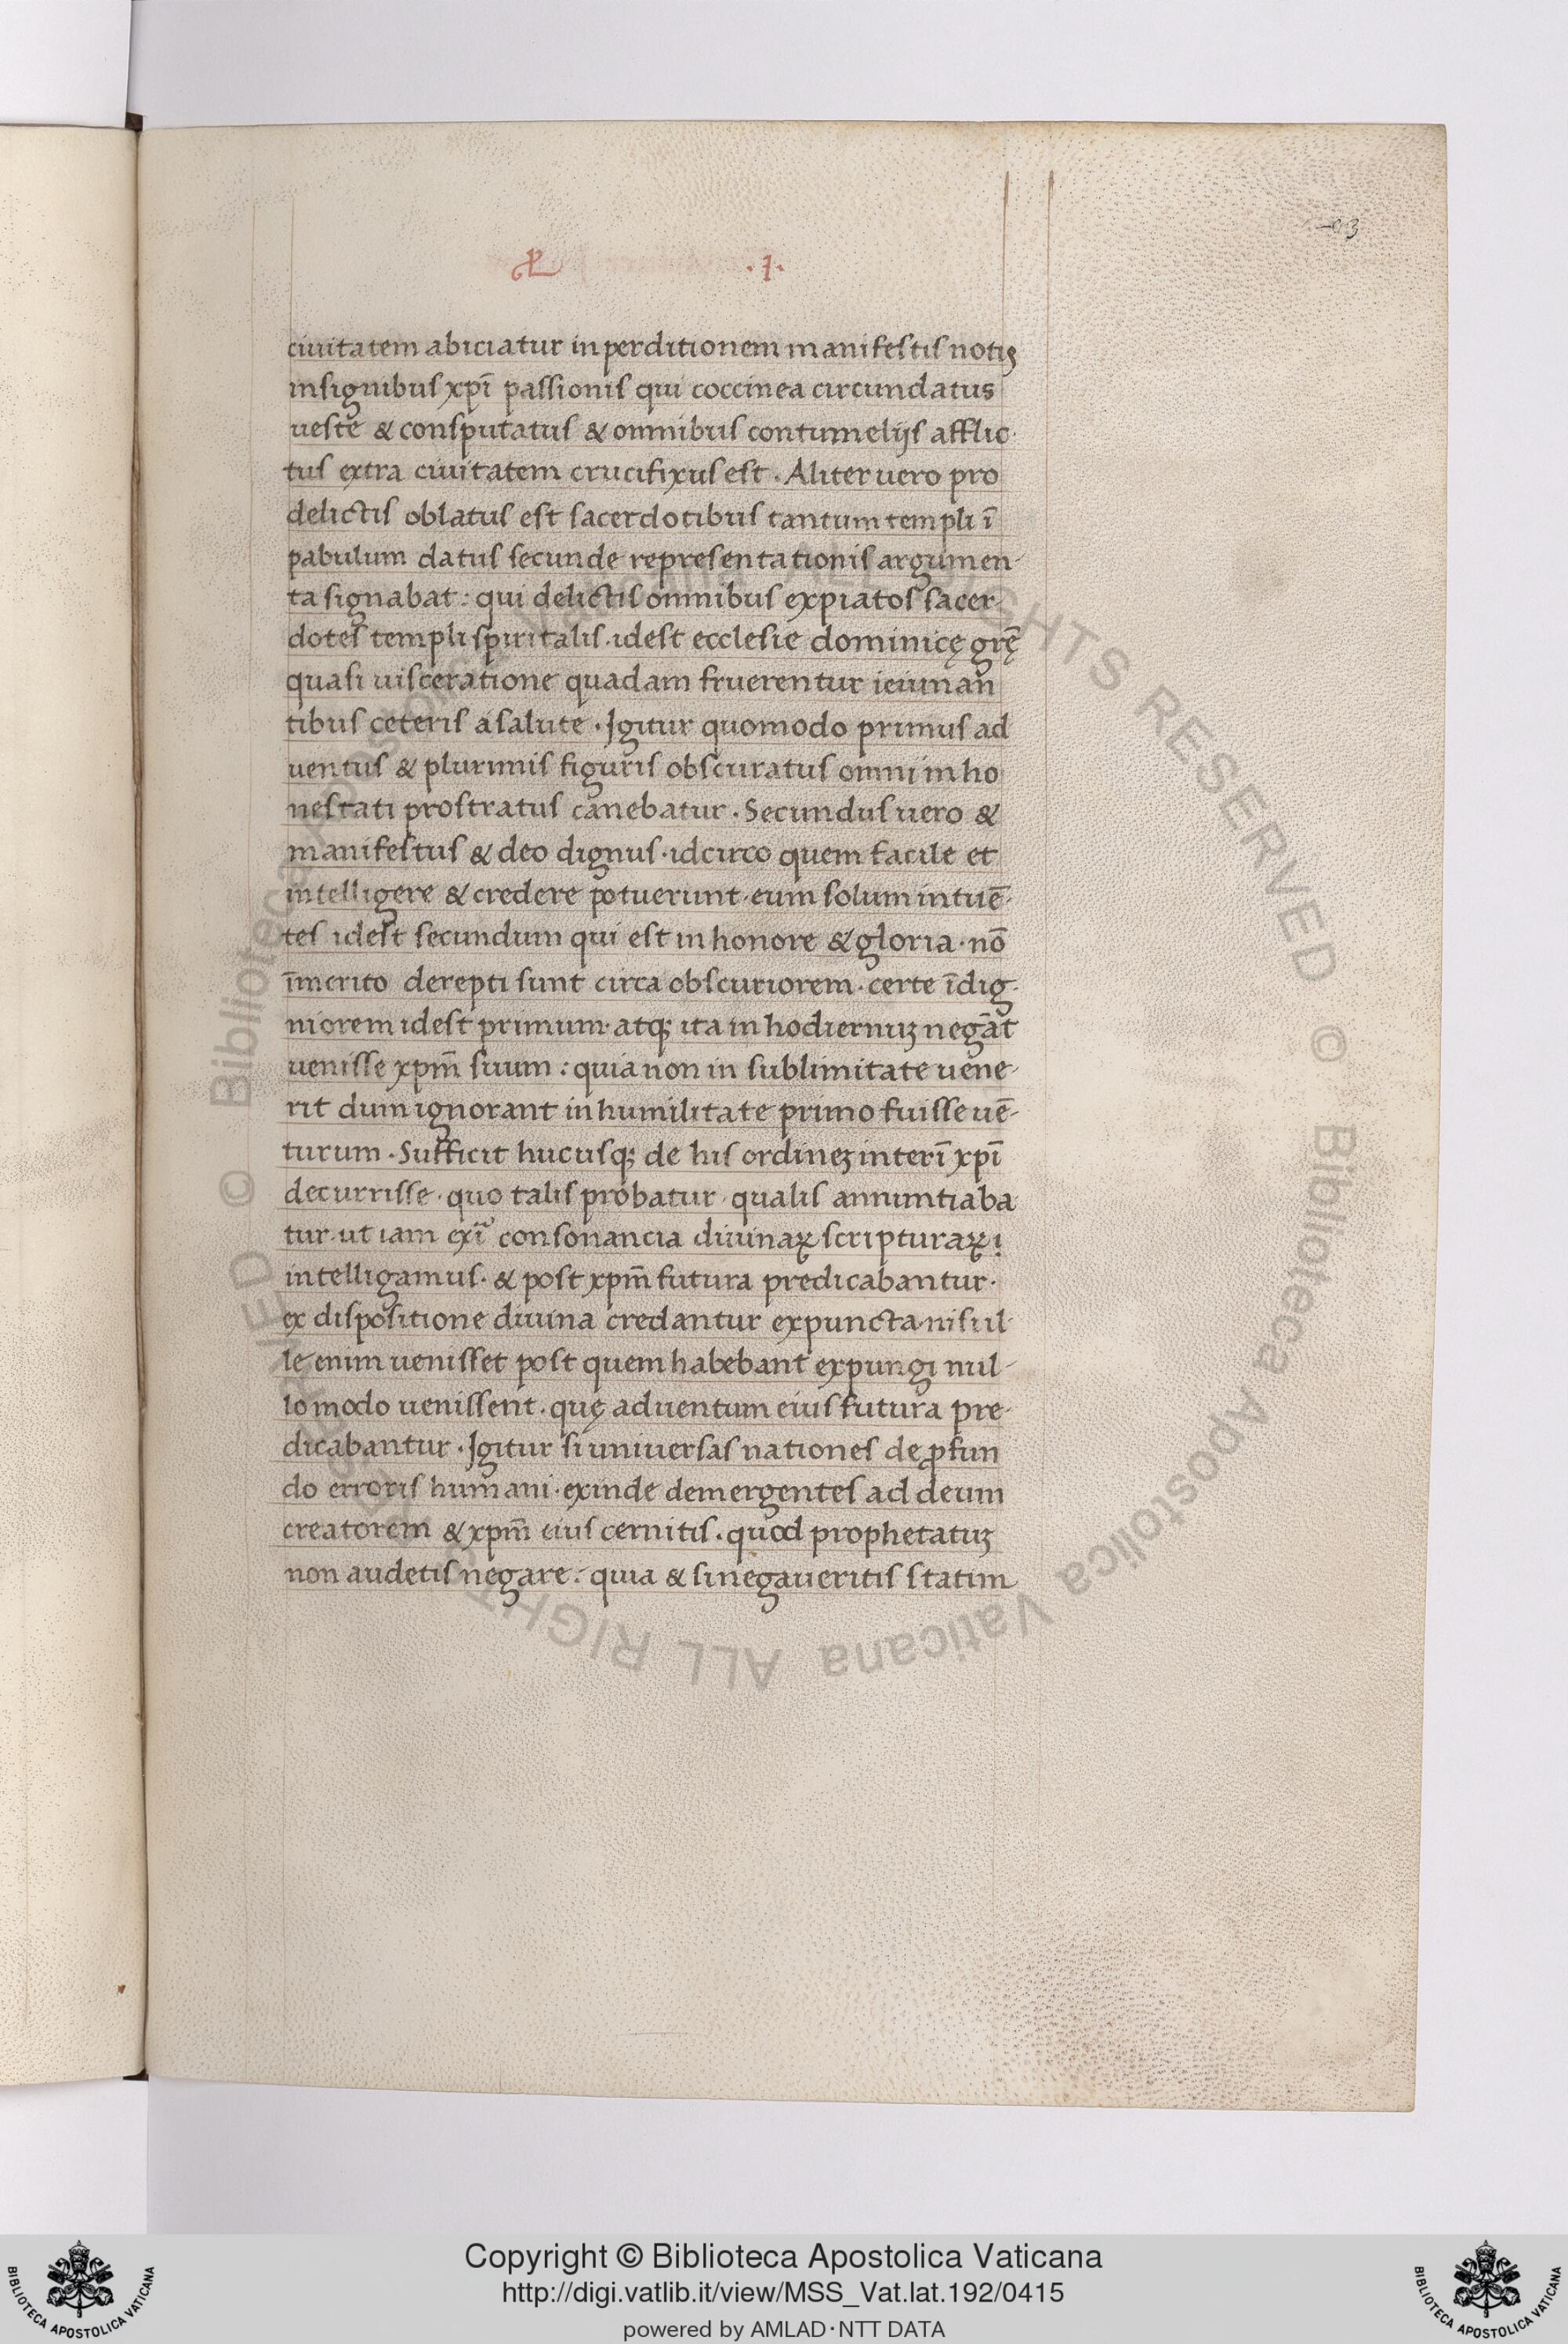 ·1·
ciuitatem abiciatur in perditionem manifestis notis
insignibus xp̄i passionis qui coccinea circundatus
ueste & consputatus & omnibus contumelijs afflic-
tus extra ciuitatem crucifixus est. Aliter uero pro
delictis oblatus est sacerdotibus tantum templi ī
pabulum datus secunde representationis argumen-
ta signabat: qui delictis omnibus expiatos sacer-
dotes templi spiritalis·idest ecclesie dominicę gr̄ę
quasi uisceratione quadam fruerentur ieiunan
tibus ceteris a salute. Igitur quomodo primus ad
uentus & plurimis figuris obscuratus omni inho
nestati prostratus canebatur. Secundus uero &
manifestus & deo dignus·idcirco quem facile et
intelligere & credere potuerunt·eum solum intuē-
tes idest secundum qui est in honore & gloria·nō
īmerito derepti sunt circa obscuriorem·certe īdig-
niorem idest primum·atqꝫ ita in hodiernuꝫ negāt
uenisse xpm̄ suum: quia non in sublimitate uene-
rit dum ignorant in humilitate primo fuisse uē-
turum. Sufficit hucusqꝫ de his ordineꝫ interī xpī
decurrisse·quo talis probatur·qualis annuntiaba
tur·ut iam consonancia diuinaꝝ scripturaꝝ
intelligamus·& post xpm̄ futura predicabantur·
ex dispositione diuina credantur expuncta·nisi il-
le enim uenisset post quem habebant expungi nul-
lo modo uenissent·quę aduentum eius futura pre-
dicabantur. Igitur si uniuersas nationes de ꝓfun
do erroris humani·exinde demergentes ad deum
creatorem & xpm̄ eius cernitis·quod prophetatuꝫ
non audetis negare: quia & si negaueritis statim
Copyright © Biblioteca Apostolica Vaticana
http://digi.vatlib.it/view/MSS_Vat.lat.192/0415
powered by AMLAD·NTT DATA
BIBLIOTECA APOSTOLICA VATICANA
BIBLIOTECA APOSTOLICA VATICANA
© Biblioteca Apostolica Vaticana ALL RIGHTS RESERVED © Biblioteca Apostolica Vaticana ALL RIGHTS RESERVED